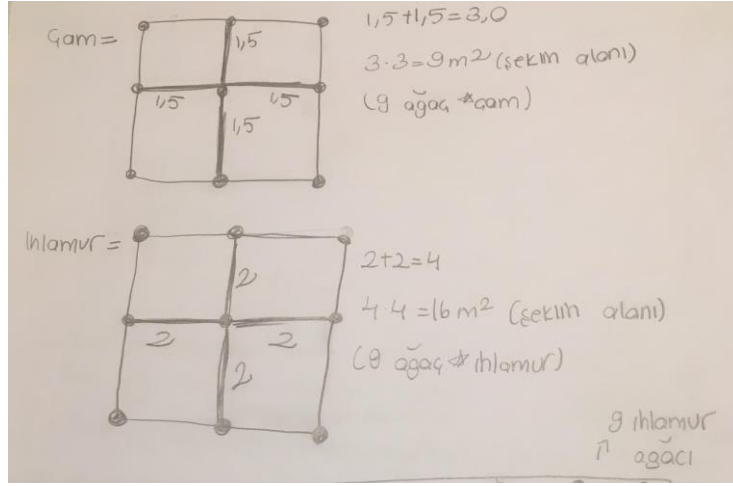 Çam=
1,5
1,5 1,5
1,5
1,5+1,5=3,0
3.3=9m² (şekin alanı)
(9 ağaç *çam)
Ihlamur=
2
2 2
2
2+2=4
4 4=16m² (şekin alanı)
(9 ağaç * ıhlamur)
9 ıhlamur
↑ ağacı